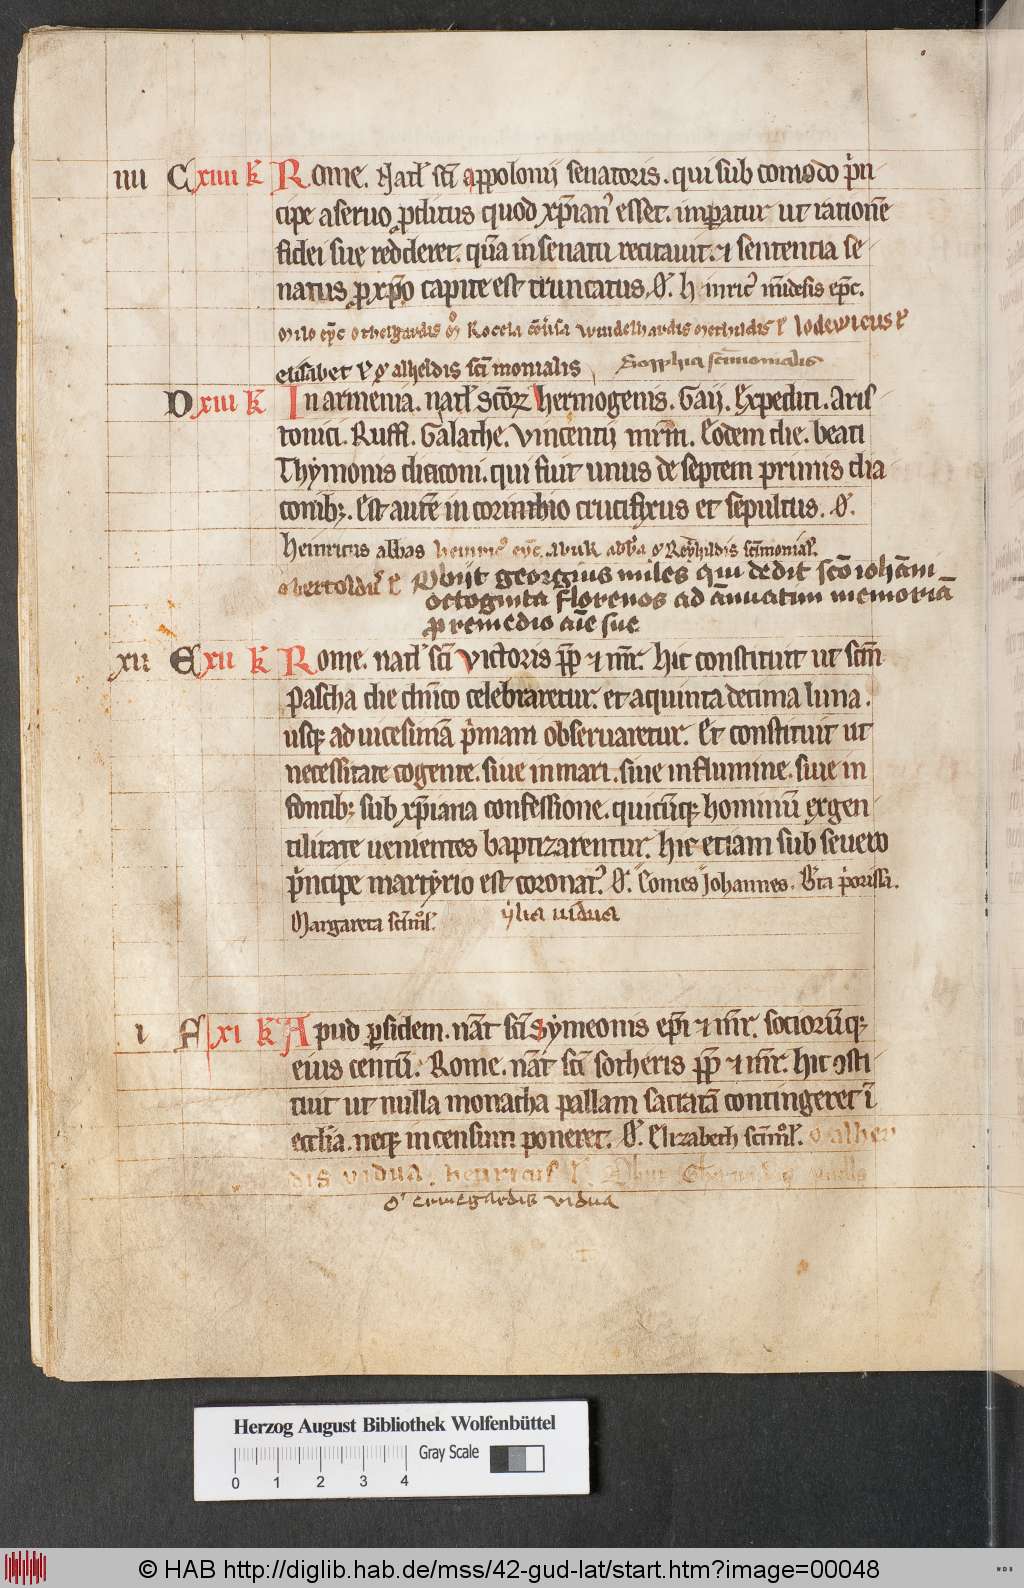 iiii C xiiii k̄ Rome. Natl̄ sc̄i appolonij senatoris. qui sub comodo p̓n
cipe a seruo ꝓditus quod xp̄ian᾽ esset. imp̲atur ut rationē
fidei sue redderet. quā in senatu recitauit. ⁊ sententia se
natus ꝓ xp̄o capite est truncatus.
elisabet alheldis sc̄i monialis Sophia sc̄imonialis
D xiii k̄ In armenia. natl̄ sc̄oꝝ hermogenis. Gaij. Expediti. Aris
tonici. Ruffi. Galathe. Vincentij mr̄m. Eodem die. beati
Thymonis diaconi. qui fuit unus de septem primis dia
conibꝫ. Est autē in corinthio crucifixus et sepultus. O᷒.
Heinricus abbas
Obijt georgius miles qui dedit sc̄o ioh̄ani
octoginta florenos ad ānuatim memoriā
ꝓ remedio aīe sue
xii E xii k̄ Rome. natl̄ sc̄i Victoris pp̄ ⁊ mr̄. Hic constituit ut sc̄m
Pascha die dn̄ico celebraretur. et a quinta decima luna.
usqꝫ ad uicesimā p̓mam obseruaretur. Et constituit ut
necessitate cogente. siue in mari. siue in flumine. siue in
fontibꝫ sub xp̄iana confessione. quicūqꝫ hominū ex gen
tilitate uenientes baptizarentur. Hic etiam sub seuero
p̓ncipe martyrio est coronat᾽. O᷒. Comes Johannes.
Margareta sc̄imōl. ylia uidua
i F xi k̄ Apud p̲sidem. nāt sc̄i Symeonis ep̄i ⁊ mr̄. sociorūqꝫ
eius centū. Rome. nāt sc̄i sotheris pp̄ ⁊ mr̄. hic ↄsti
tuit ut nulla monacha pallam sacratā contingeret ī
eccl̄ia. neqꝫ incensum poneret. O᷒. Elizabeth sc̄imōl. o᷒ alhey
dis vidua. henricus
o᷒ ermegardis vidua
Herzog August Bibliothek Wolfenbüttel
Gray Scale
0 1 2 3 4
© HAB http://diglib.hab.de/mss/42-gud-lat/start.htm?image=00048